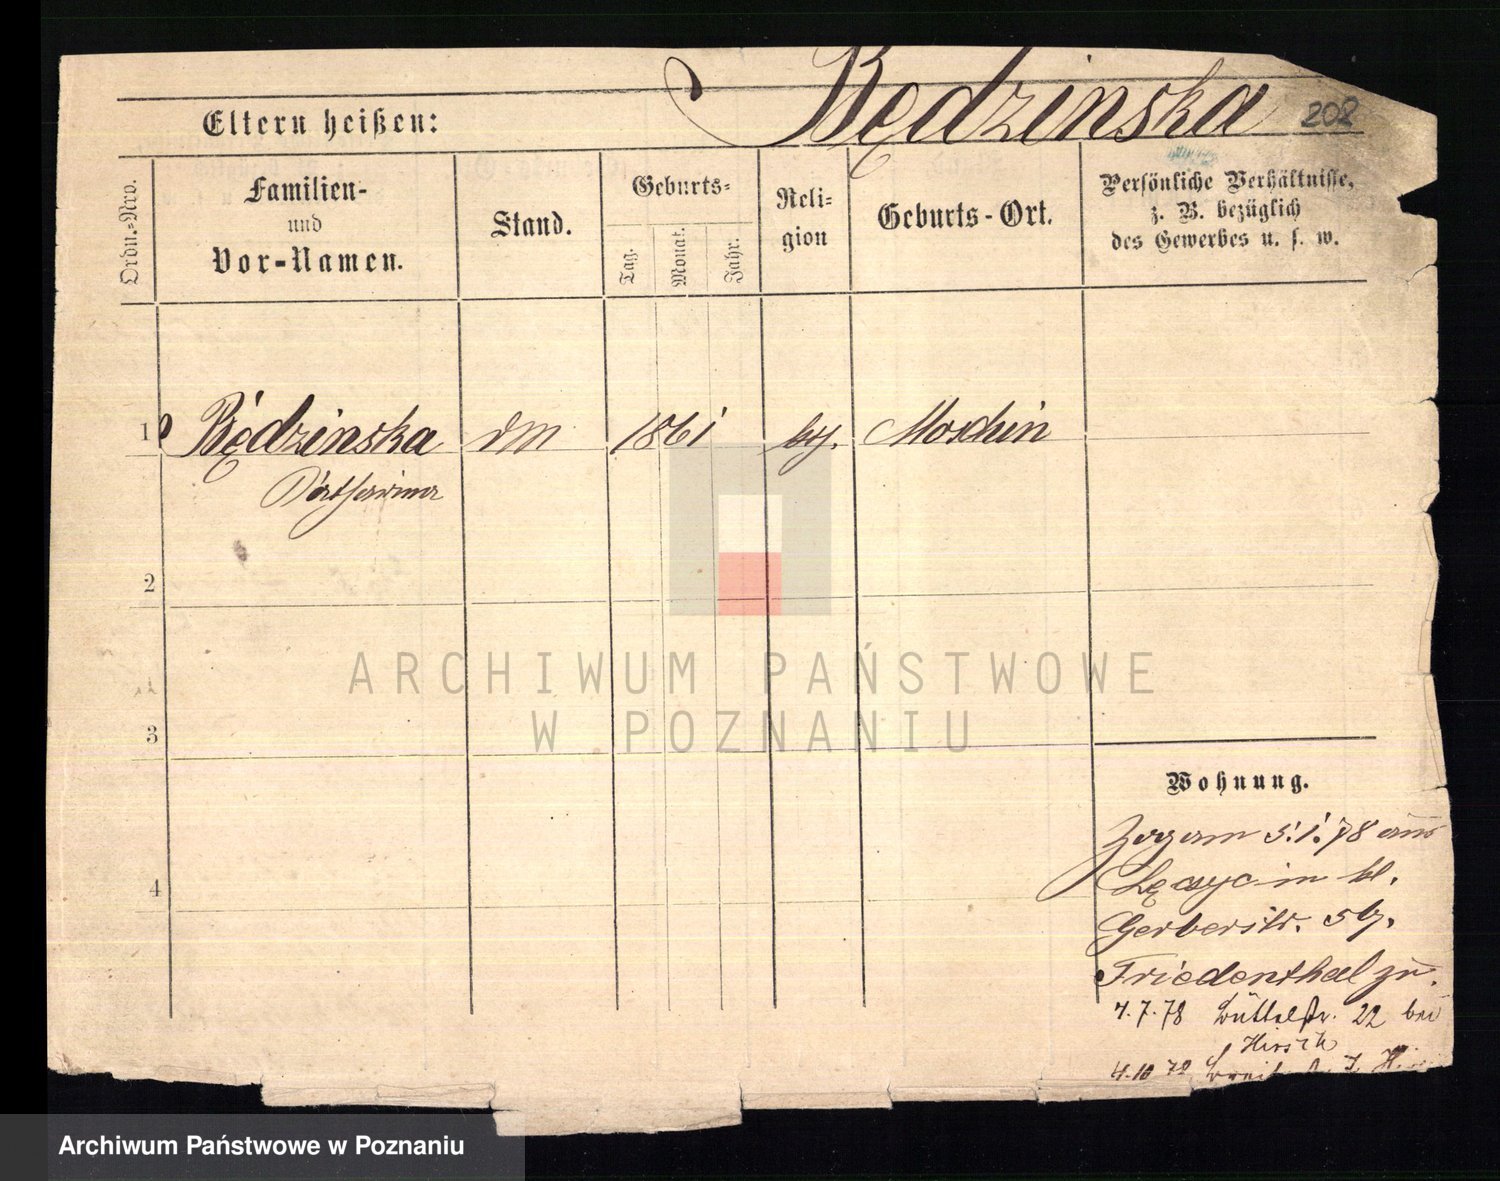 Będzinska 208
Eltern heißen:
Ordn.-Nro.
Familien-
und
Vor-Namen.
Stand.
Geburts-
Tag.
Monat.
Jahr.
Reli-
gion
Geburts-Ort.
Persönliche Verhältnisse,
z. B. bezüglich
des Gewerbes u. s. w.
1 Będzinska dm 1861 kg. Moschin
Catharina
2
3
4
Wohnung.
Zog am 5.1.78 aus
in kl.
Gerberstr. 5 bei
Friedenthal zu.
4.7.78 Büttelstr. 22 bei
Hirsch
4.10 78 7
ARCHIWUM PAŃSTWOWE
W POZNANIU
Archiwum Państwowe w Poznaniu